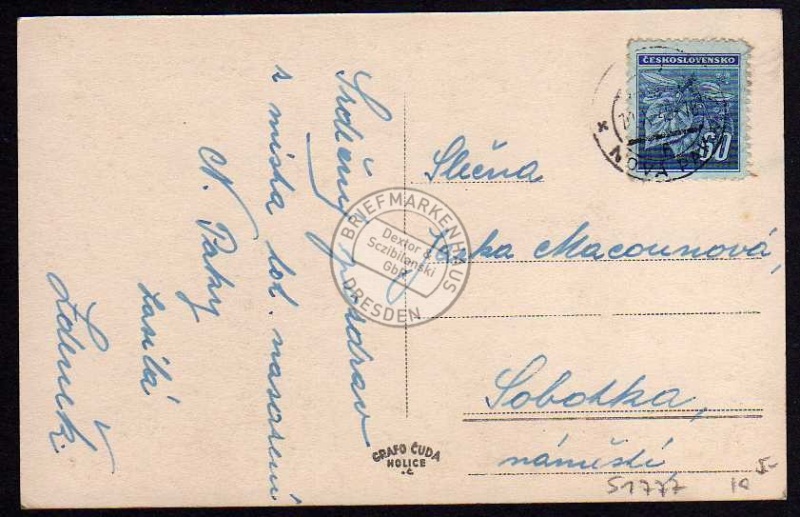 Srdečný pozdrav
z místa
N. Paky
zasílá
Zdeněk.
Slečna
Macounová,
Sobotka,
náměstí
ČESKOSLOVENSKO
60
NOVÁ PA
GRAFO ČUDA
HOLICE
BRIEFMARKENHAUS
Dextor &
Sczibilanski
GbR
DRESDEN
S1777
5-